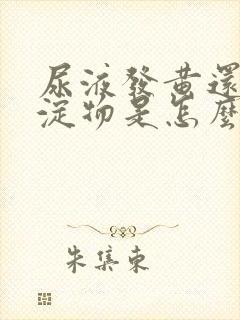 尿液發黄還
淀物是怎麼
朱集東